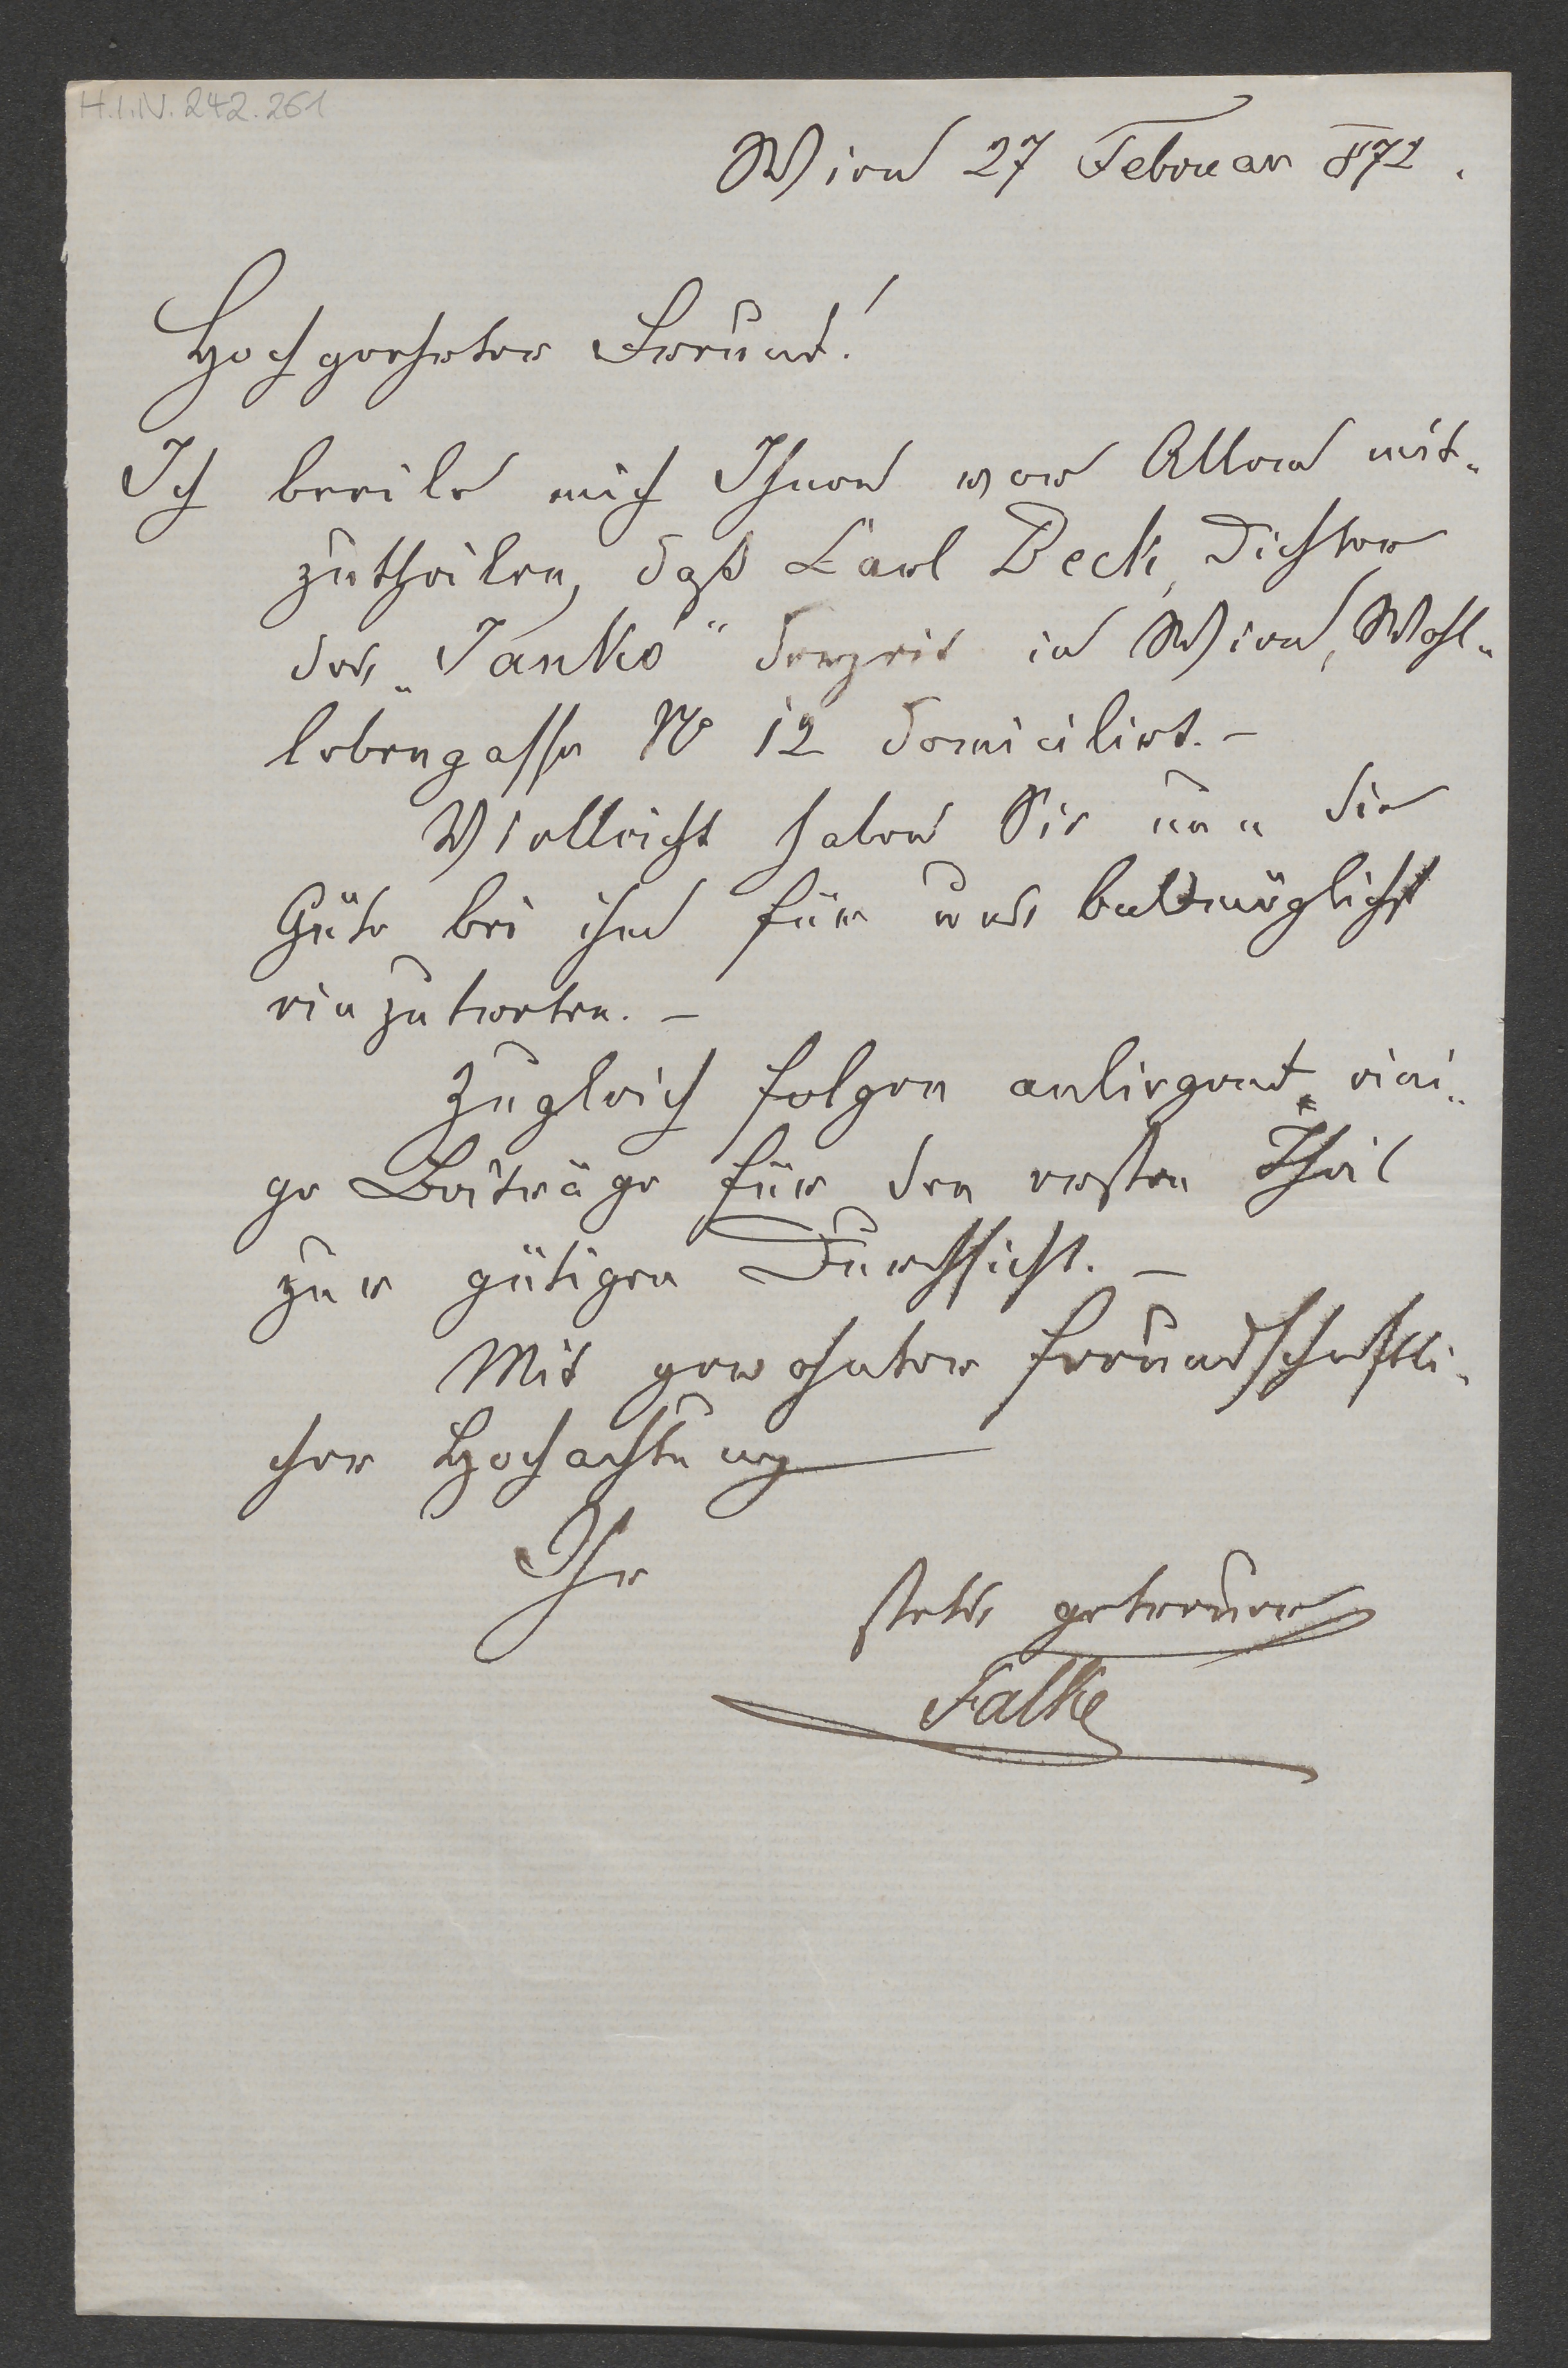 H.I.N. 242.261
Wien 27 Februar 872.
Hochgeehrter Freund!
Ich beeile mich Ihnen vor Allem mit-
zutheilen, daß Carl Beck, Dichter
des „Janko" derzeit in Wien, Wohl-
lebengasse No 12 domicilirt. –
Vielleicht haben Sie nun die
Güte bei ihm für uns baldmöglichst
einzutreten. –
Zugleich folgen anliegend eini-
ge Beiträge für den ersten Theil
zur gütigen Durchsicht. –
Mit gewohnter freundschaftli-
cher Hochachtung
Ihr
stets getreuer
Falke